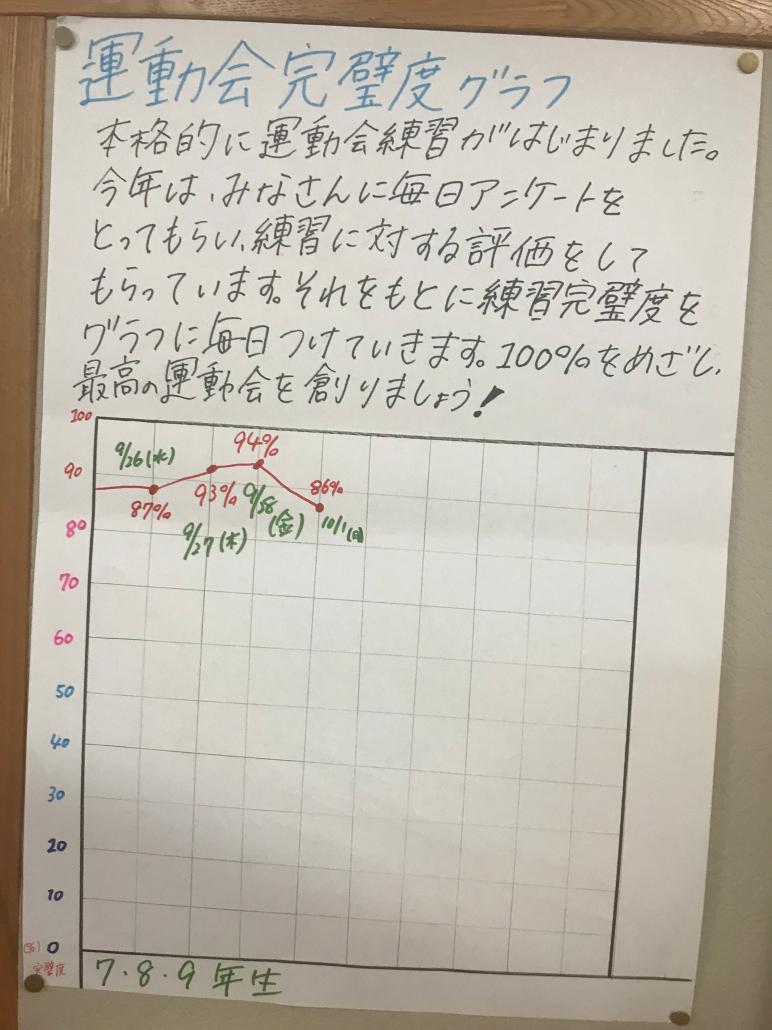 運動会完璧度グラフ
本格的に運動会練習がはじまりました。
今年は、みなさんに毎日アンケートを
とってもらい、練習に対する評価をして
もらっています。それをもとに練習完璧度を
グラフに毎日つけていきます。100%をめざし、
最高の運動会を創りましょう!
100
94%
9/26(水)
90
93%
9/28
(金)
86%
87%
10/1(月)
80
9/27(木)
70
60
50
40
30
20
10
(%) 0
完璧度
7・8・9年生